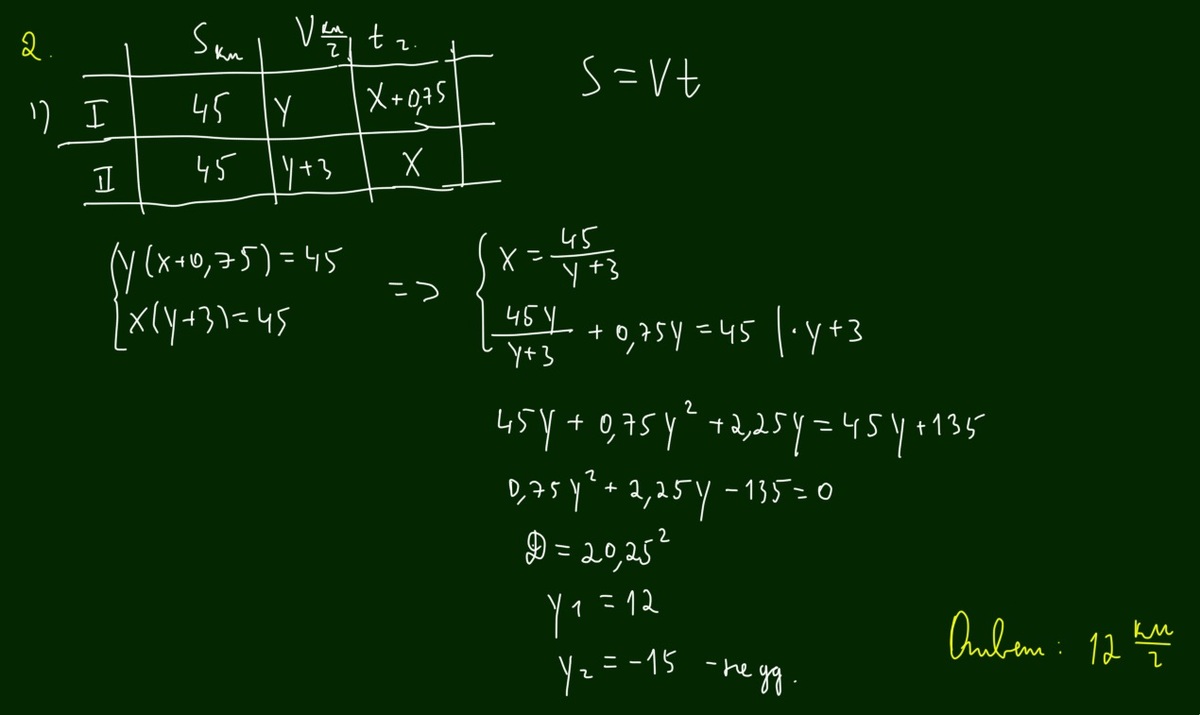 2.
S км V км/ч t ч.
1) I 45 y x+0,75
II 45 y+3 x
S = Vt
{ y(x+0,75)=45
x(y+3)=45
=> { x = 45/(y+3)
45y/(y+3) + 0,75y = 45 | · y+3
45y + 0,75y² + 2,25y = 45y + 135
0,75y² + 2,25y - 135 = 0
D = 20,25²
y₁ = 12
y₂ = -15 - не уд.
Ответ: 12 км/ч